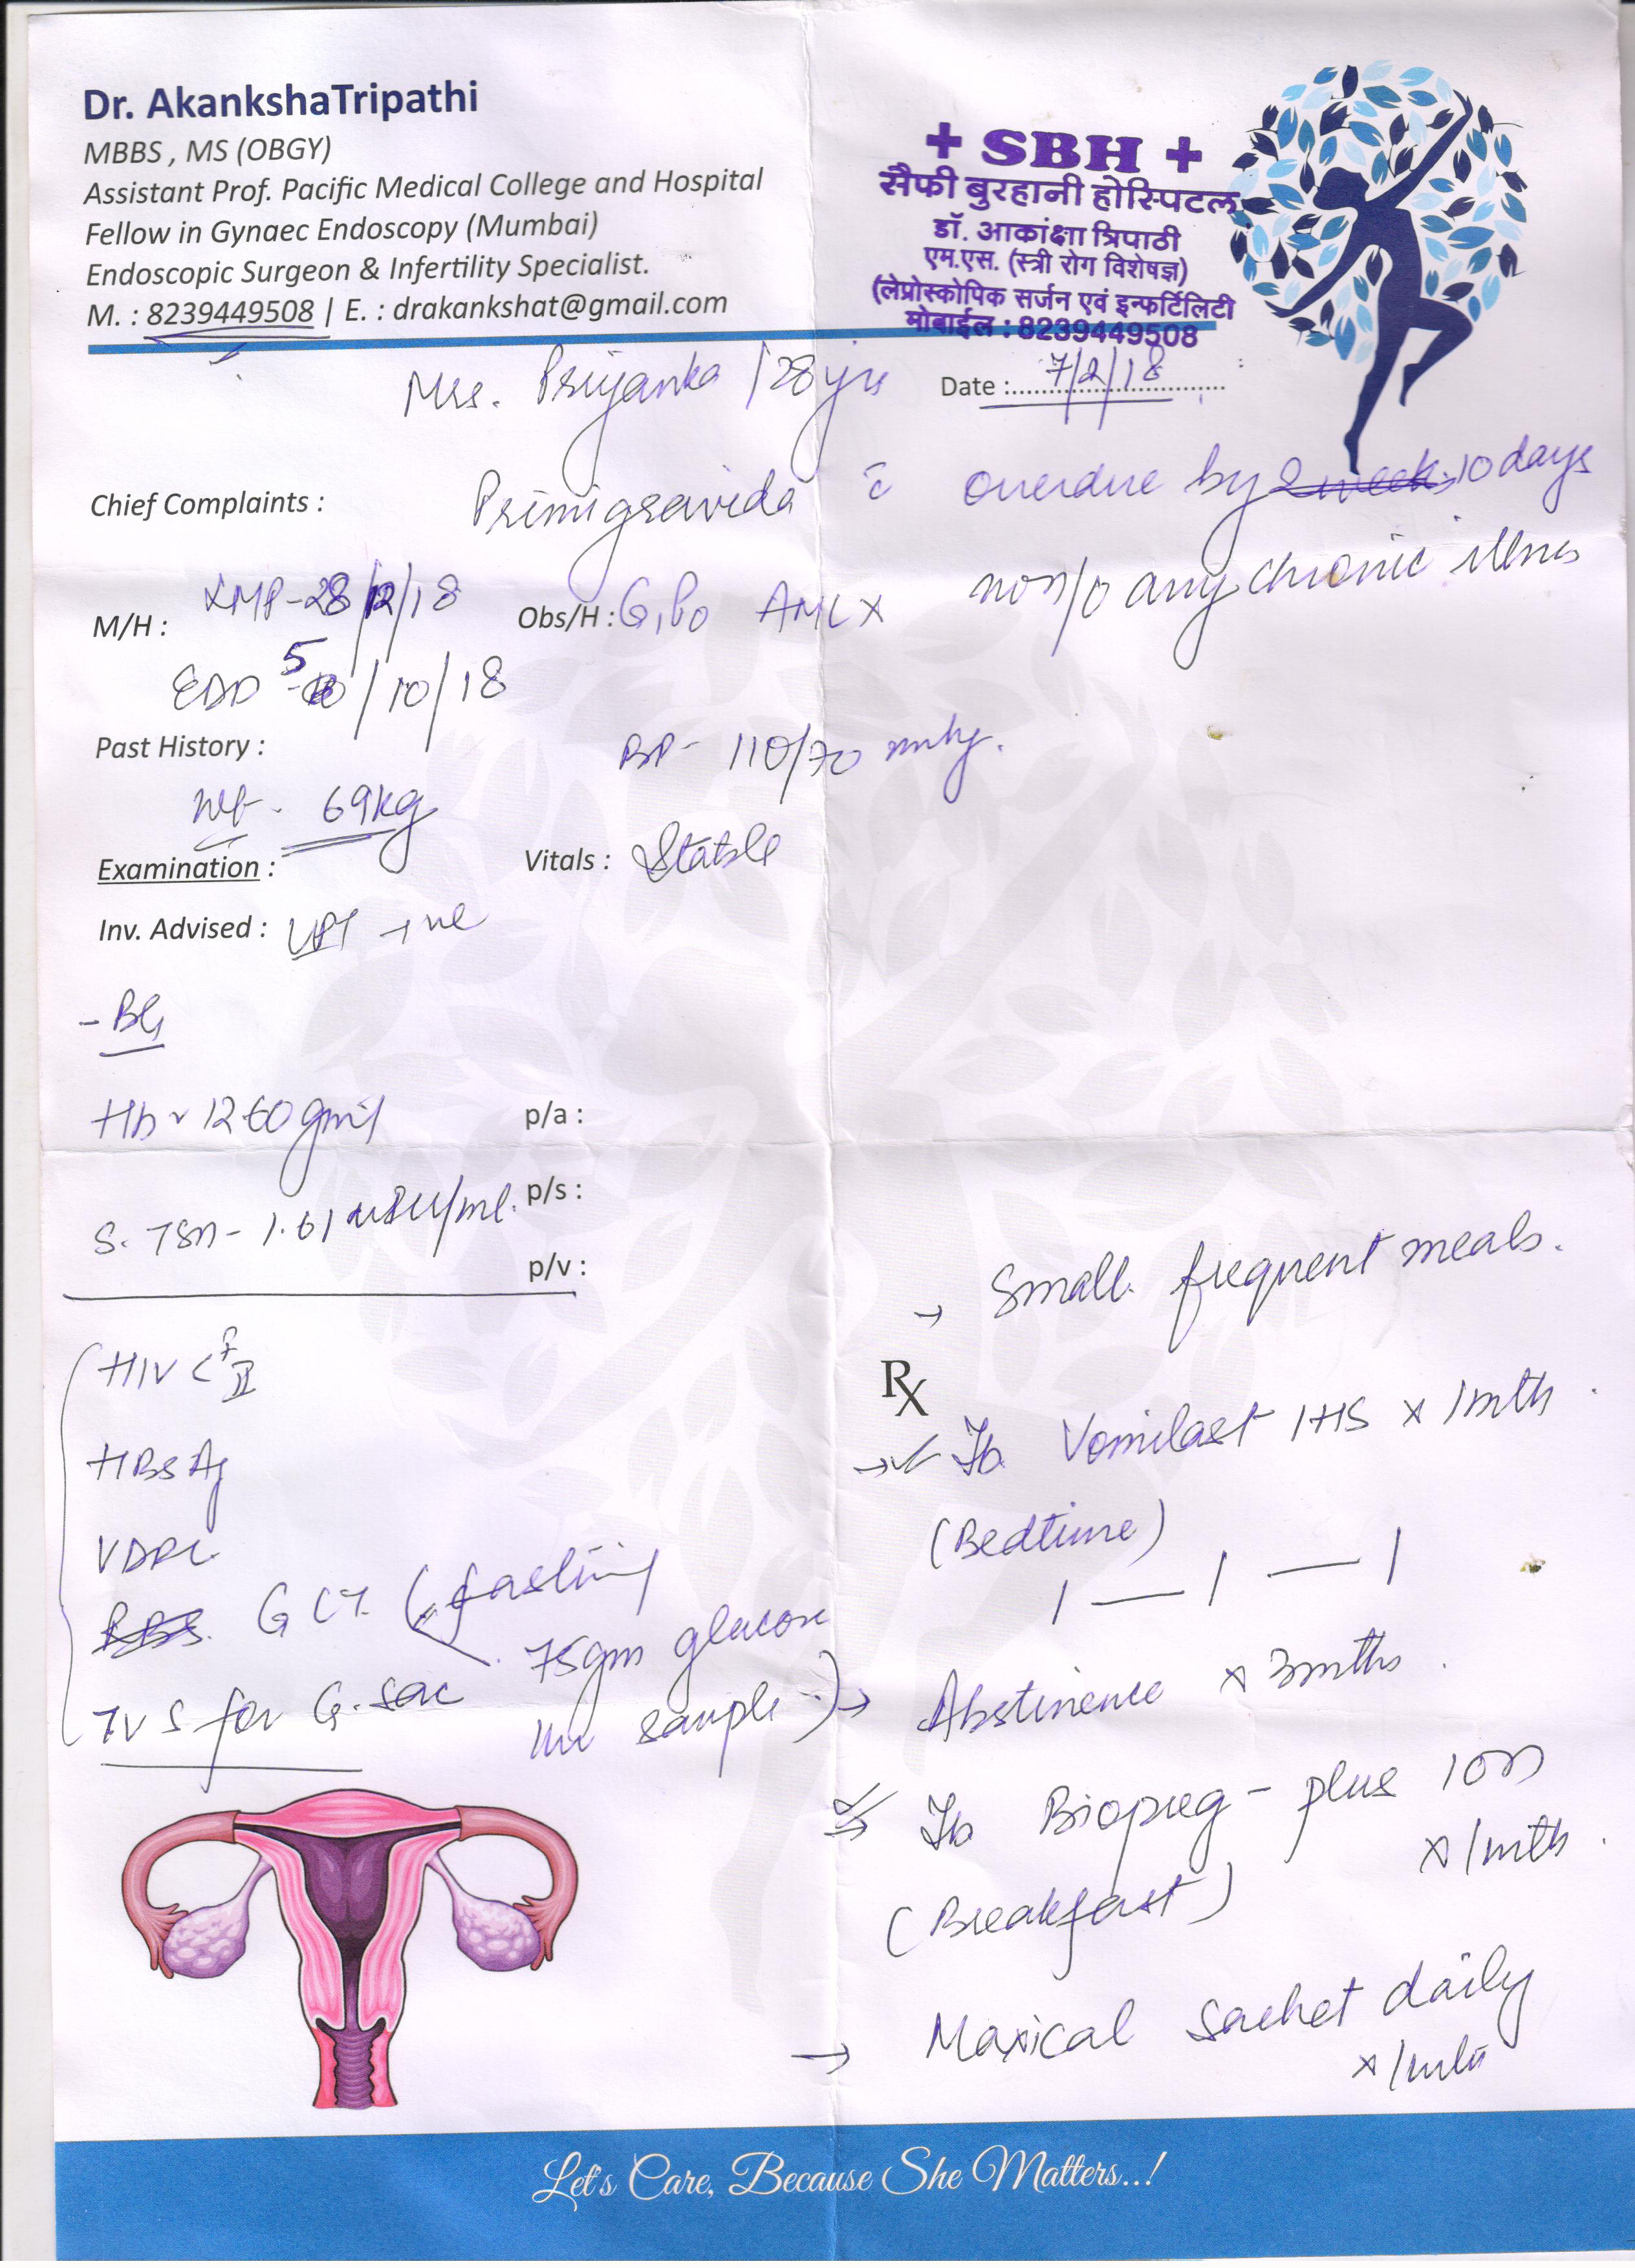 Dr. AkankshaTripathi
MBBS , MS (OBGY)
Assistant Prof. Pacific Medical College and Hospital
Fellow in Gynaec Endoscopy (Mumbai)
Endoscopic Surgeon & Infertility Specialist.
M. : 8239449508 | E. : drakankshat@gmail.com
+ SBH +
सैफी बुरहानी होस्पिटल
डॉ. आकांक्षा त्रिपाठी
एम.एस. (स्त्री रोग विशेषज्ञ)
(लेप्रोस्कोपिक सर्जन एवं इन्फर्टिलिटी
मोबाईल : 8239449508
Mrs. Priyanka /28 yrs
Date : 7/2/18
Chief Complaints : Primigravida c̄ overdue by 2 weeks 10 days
M/H : LMP - 28/12/18
Obs/H : G1P0 A0L x
no h/o any chronic illness
EDD - 5/10/18
Past History :
BP - 110/70 mmhg.
Wt - 69kg
Examination :
Vitals : Stable
Inv. Advised : UPT +ve
- BG
Hb - 12.60 gm%
p/a :
S. TSH - 1.61 /ml.
p/s :
p/v :
HIV I II
HBsAg
VDRL
RBS. GCT. (fasting
75gm glucose
1hr sample)
TVS for G. sac
→ Small frequent meals.
Rx
→ Tb Vomilast 1HS x 1mth.
(Bedtime)
1 — 1 — 1
→ Abstinence x 3mths.
→ Tb Biopreg - plus 1OD
x 1mth.
(Breakfast)
→ Maxical sachet daily
x 1mth
Let's Care, Because She Matters..!